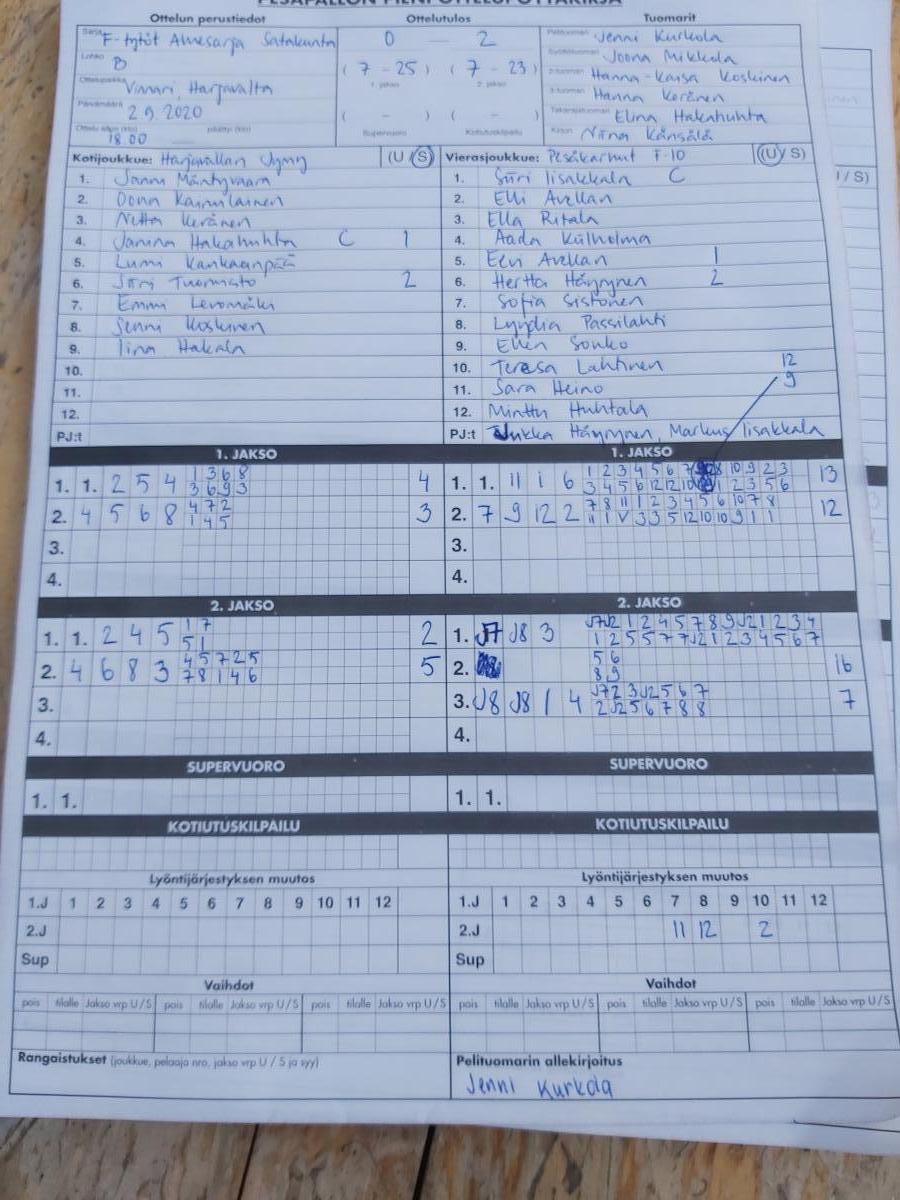 PESÄPALLON PIENI OTTELUPÖYTÄKIRJA
Ottelun perustiedot
Ottelutulos
Tuomarit
Sarja F-tytöt Aluesarja Satakunta
0 — 2
Pelituomari Jenni Kurkola
Lohko B
(7 - 25) (7 - 23)
Joona Mikkola
1. jakso 2. jakso
2-tuomari Hanna-Kaisa Koskinen
Ottelupaikka Vinnari, Harjavalta
3-tuomari Hanna Keränen
Päivämäärä 2.9.2020
( - ) ( - )
Takarajatuomari Elina Hakahuhta
Ottelu alkoi (klo) 18.00 päättyi (klo)
Supervuoro Kotiutuskilpailu
Kirjuri Niina Känsälä
Kotijoukkue: Harjavallan Jymy (U / S)
Vierasjoukkue: Pesäkarhut F-10 (U / S)
1. Jonna Mäntyvaara
1. Siiri Iisakkala C
2.
2. Elli Avellan
3. Netta Keränen
3. Ella Ritala
4. Janina Hakahuhta C 1
4. Aada Külholma
5. Lumi Kankaanpää
5. Eevi Avellan 1
6. Siiri Tuomisto 2
6. Hertta Häyrynen 2
7. Emmi Levomäki
7. Sofia Sistonen
8. Senni Koskinen
8. Lyydia Passilahti
9. Iina Hakala
9. Ellen Sonko
10.
10. Teresa Lahtinen 12
9
11.
11. Sara Heino
12.
12. Minttu Huhtala
PJ:t
PJ:t Jukka Häyrynen, Markus Iisakkala
1. JAKSO
1. JAKSO
1 3 6 8
1. 1. 2 5 4 4
3 6 9 3
1 2 3 4 5 6 7 8 10 9 2 3
1. 1. 11 1 6 13
3 4 5 6 12 12 10 1 2 3 5 6
4 7 2
2. 4 5 6 8 3
1 4 5
7 8 11 1 2 3 4 5 6 10 7 8
2. 7 9 12 2 12
11 1 V 3 3 5 12 10 10 9 1 1
3.
3.
4.
4.
2. JAKSO
2. JAKSO
1 7
1. 1. 2 4 5 2
5 1
J7 J2 1 2 4 5 7 8 9 J2 1 2 3 4
1. J7 J8 3
1 2 5 5 7 7 J2 1 2 3 4 5 6 7
4 5 7 2 5
2. 4 6 8 3 5
7 8 1 4 6
5 6
2. 16
8 9
3.
J7 2 3 J2 5 6 7
3. J8 J8 1 4 7
2 J2 5 6 7 8 8
4.
4.
SUPERVUORO
SUPERVUORO
1. 1.
1. 1.
KOTIUTUSKILPAILU
KOTIUTUSKILPAILU
Lyöntijärjestyksen muutos
Lyöntijärjestyksen muutos
1.J 1 2 3 4 5 6 7 8 9 10 11 12
1.J 1 2 3 4 5 6 7 8 9 10 11 12
2.J
2.J 11 12 2
Sup
Sup
Vaihdot
Vaihdot
pois tilalle Jakso vrp U / S pois tilalle Jakso vrp U / S pois tilalle Jakso vrp U / S
pois tilalle Jakso vrp U / S pois tilalle Jakso vrp U / S pois tilalle Jakso vrp U / S
Rangaistukset (joukkue, pelaaja nro, jakso vrp U / S ja syy)
Pelituomarin allekirjoitus
Jenni Kurkola